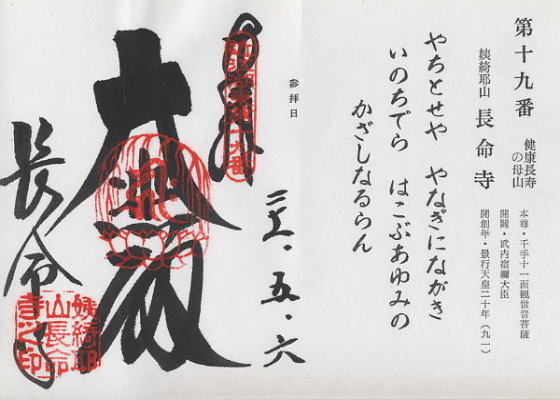 第十九番
健康長寿
の母山
姨綺耶山 長命寺
本尊・千手十一面観世音菩薩
開闢・武内宿禰大臣
開創年・景行天皇二十年(九一)
やちとせや やなぎにながき
いのちでら はこぶあゆみの
かざしなるらん
参拝日
五・六
大悲殿
長命寺
姨綺耶
山長命
寺之印